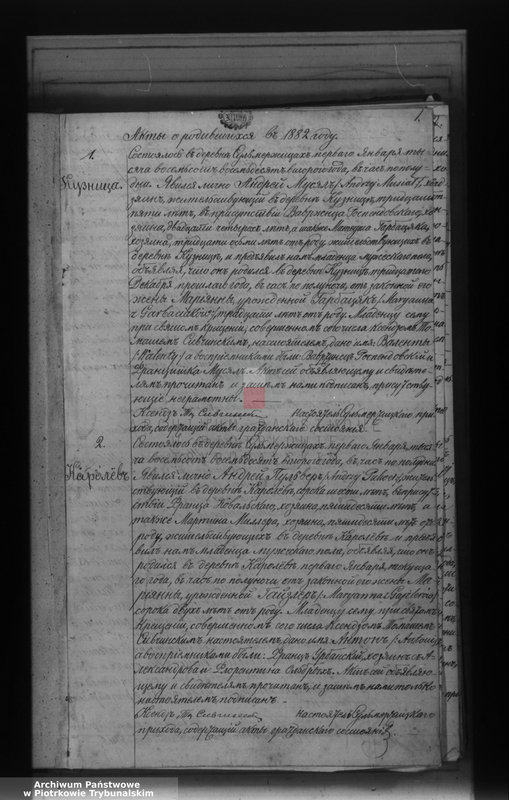 1.
Акты о родившихся въ 1882 году.
1.
Кузница.
Состоялось въ деревнѣ Сульмержицахъ перваго Января тысяча
восемьсотъ восемьдесятъ втораго года, въ часъ пополу-
дни. Явился лично Андрей Мусял /Andrey Musiał/,
жительствующій въ деревнѣ Кузницѣ, тридцати
пяти лѣтъ, въ присутствіи Вавржинца Госповскаго, хо-
зяина, двадцати четырехъ лѣтъ, а также Матеуша Гарбацяка,
хозяина, тридцати осьми лѣтъ отъ роду, жительствующихъ въ
деревнѣ Кузницѣ, и предъявилъ намъ младенца мужескаго пола,
объявляя, что онъ родился въ деревнѣ Кузница тридцатаго
Декабря прошлаго года, въ часъ по полуночи, отъ законной его
жены Марьянны, урожденной Гарбацякъ /Maryanna
тридцати лѣтъ отъ роду. Младенцу сему
при святомъ крещеніи, совершенномъ сего числа Ксендзомъ То-
машемъ Сивчинскимъ, настоятелемъ, дано имя Валенты
/Walenty/, а воспріемниками были: Вавржинецъ и
Францишка Мусялъ. Актъ сей объявляющему и свидѣте-
лямъ прочитанъ и затѣмъ нами подписанъ, присутству-
ющіе неграмотны.
Ксендзъ настоятель Сульмержицкаго при-
хода, содержащій акты гражданскаго состоянія.
2.
Каролевъ
Состоялось въ деревнѣ Сульмержицахъ перваго Января, тыся-
ча восемьсотъ восемьдесятъ втораго года, въ часъ по полудни.
Явился лично Андрей /Andrey, житель-
ствующій въ деревнѣ Каролевъ, сорока шести лѣтъ, въ присут-
ствіи Франца Ковальскаго, хозяина, пятидесяти лѣтъ, а
также Мартина Миллера, хозяина, пятидесяти лѣтъ отъ
роду, жительствующихъ въ деревнѣ Каролевъ и предъя-
вилъ намъ младенца мужескаго пола, объявляя, что онъ
родился въ деревнѣ Каролевъ перваго Января, текуща-
го года, въ часъ по полуночи отъ законной его жены Ма-
ріянны, урожденной Гайзлеръ /Maryanna
сорока двухъ лѣтъ отъ роду. Младенцу сему при святомъ
Крещеніи, совершенномъ сего числа Ксендзомъ Томашемъ
Сивчинскимъ настоятелемъ, дано имя Антонъ /Antoni/
а воспріемниками были: Францъ Урбанскій, хозяинъ съ А-
лександрова и Флорентина. Актъ сей объявляю-
щему и свидѣтелямъ прочитанъ, и затѣмъ нами только
настоятелемъ подписанъ.
Ксендзъ настоятель Сульмержицкаго
прихода, содержащій акты гражданскаго состоянія.
Archiwum Państwowe
w Piotrkowie Trybunalskim